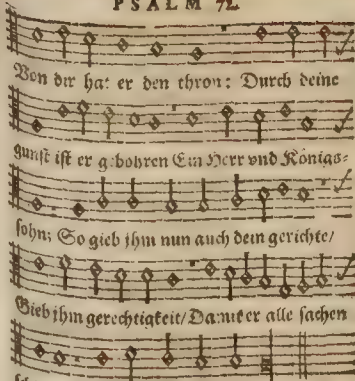 PSALM 72.
Von dir hat er den thron: Durch deine
gunst ist er gebohren Ein Herr vnd Königs-
sohn; So gieb jhm nun auch dein gerichte/
Gieb jhm gerechtigkeit/ Damit er alle sachen